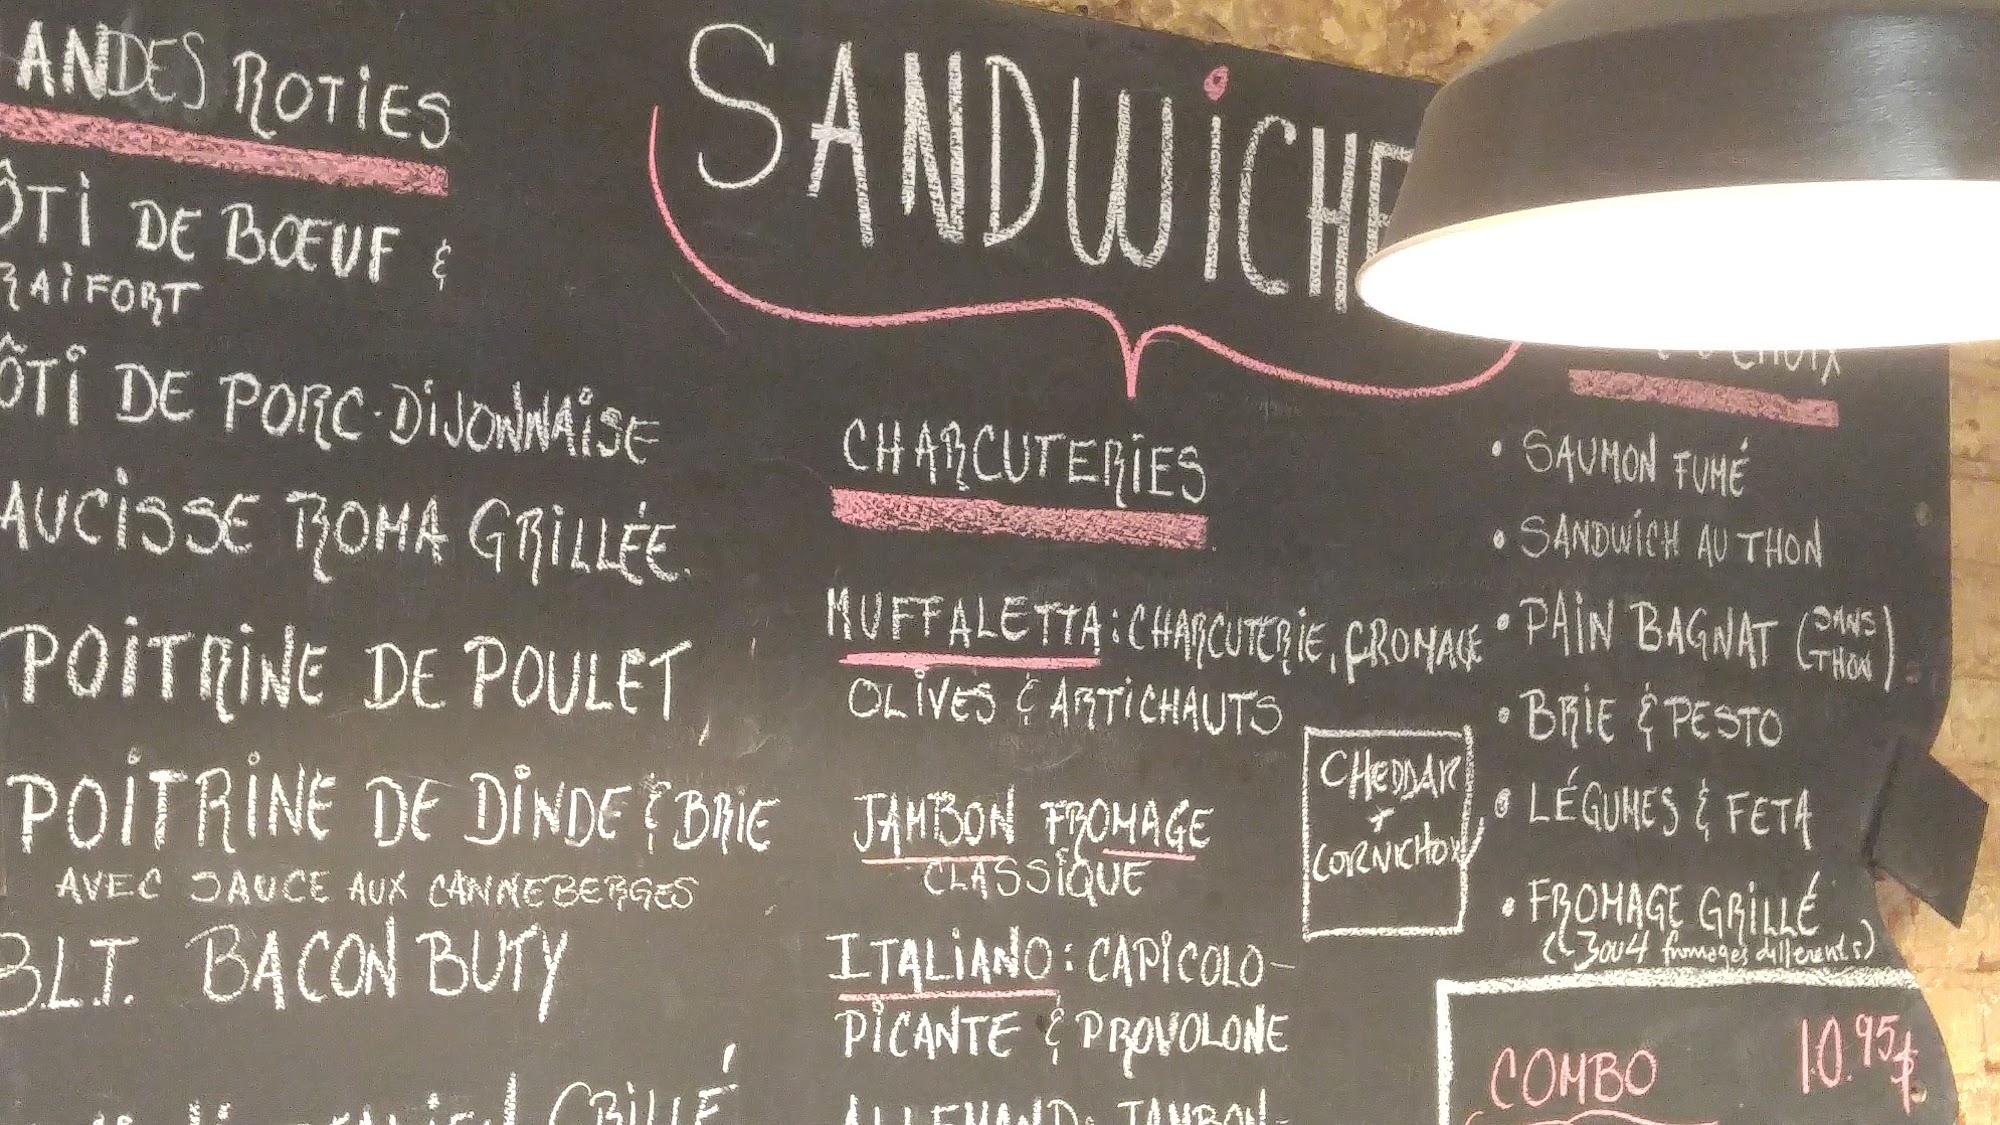 SANDWiCHE
ANDES ROTiES
ÔTi DE BŒUF &
RAiFORT
ÔTi DE PORC·DiJONNAiSE
AUCiSSE ROMA GRiLLÉE.
POiTRiNE DE POULET
POiTRiNE DE DiNDE & BRiE
AVEC SAUCE AUX CANNEBERGES
B.L.T. BACON BUTY
GRILLÉ
CHARCUTERiES
MUFFALETTA: CHARCUTERiE, FROMAGE
OLiVES & ARTiCHAUTS
JAMBON FROMAGE
CLASSiQUE
ITALiANO: CAPiCOLO-
PiCANTE & PROVOLONE
ALLEMAND: JAMBON-
CHEDDAR
+
CORNICHON
CHOiX
• SAUMON FUMÉ
• SANDWiCH AU THON
• PAiN BAGNAT (SANS
THON)
• BRiE & PESTO
• LÉGUMES & FETA
• FROMAGE GRiLLÉ
(3 ou 4 fromages différents)
COMBO 10.95$